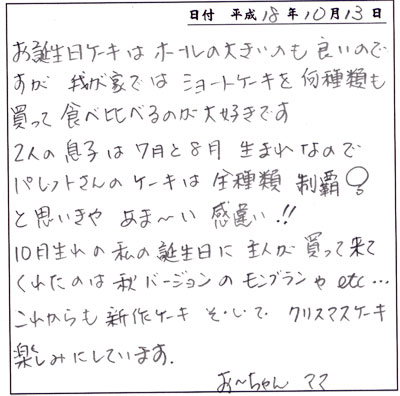 日付 平成18年10月13日
お誕生日ケーキは ホールの大きいのも 良いので
すが 我が家では ショートケーキを 何種類も
買って 食べ比べるのが大好きです
2人の息子は7月と8月 生まれなので
パレットさんの ケーキは 全種類 制覇
と思いきや あま〜い 感違い!!
10月生れの 私の誕生日に 主人が 買って来て
くれたのは 秋バージョンの モンブランや etc…
これからも 新作ケーキ そして クリスマスケーキ
楽しみにしています.
お〜ちゃん ママ